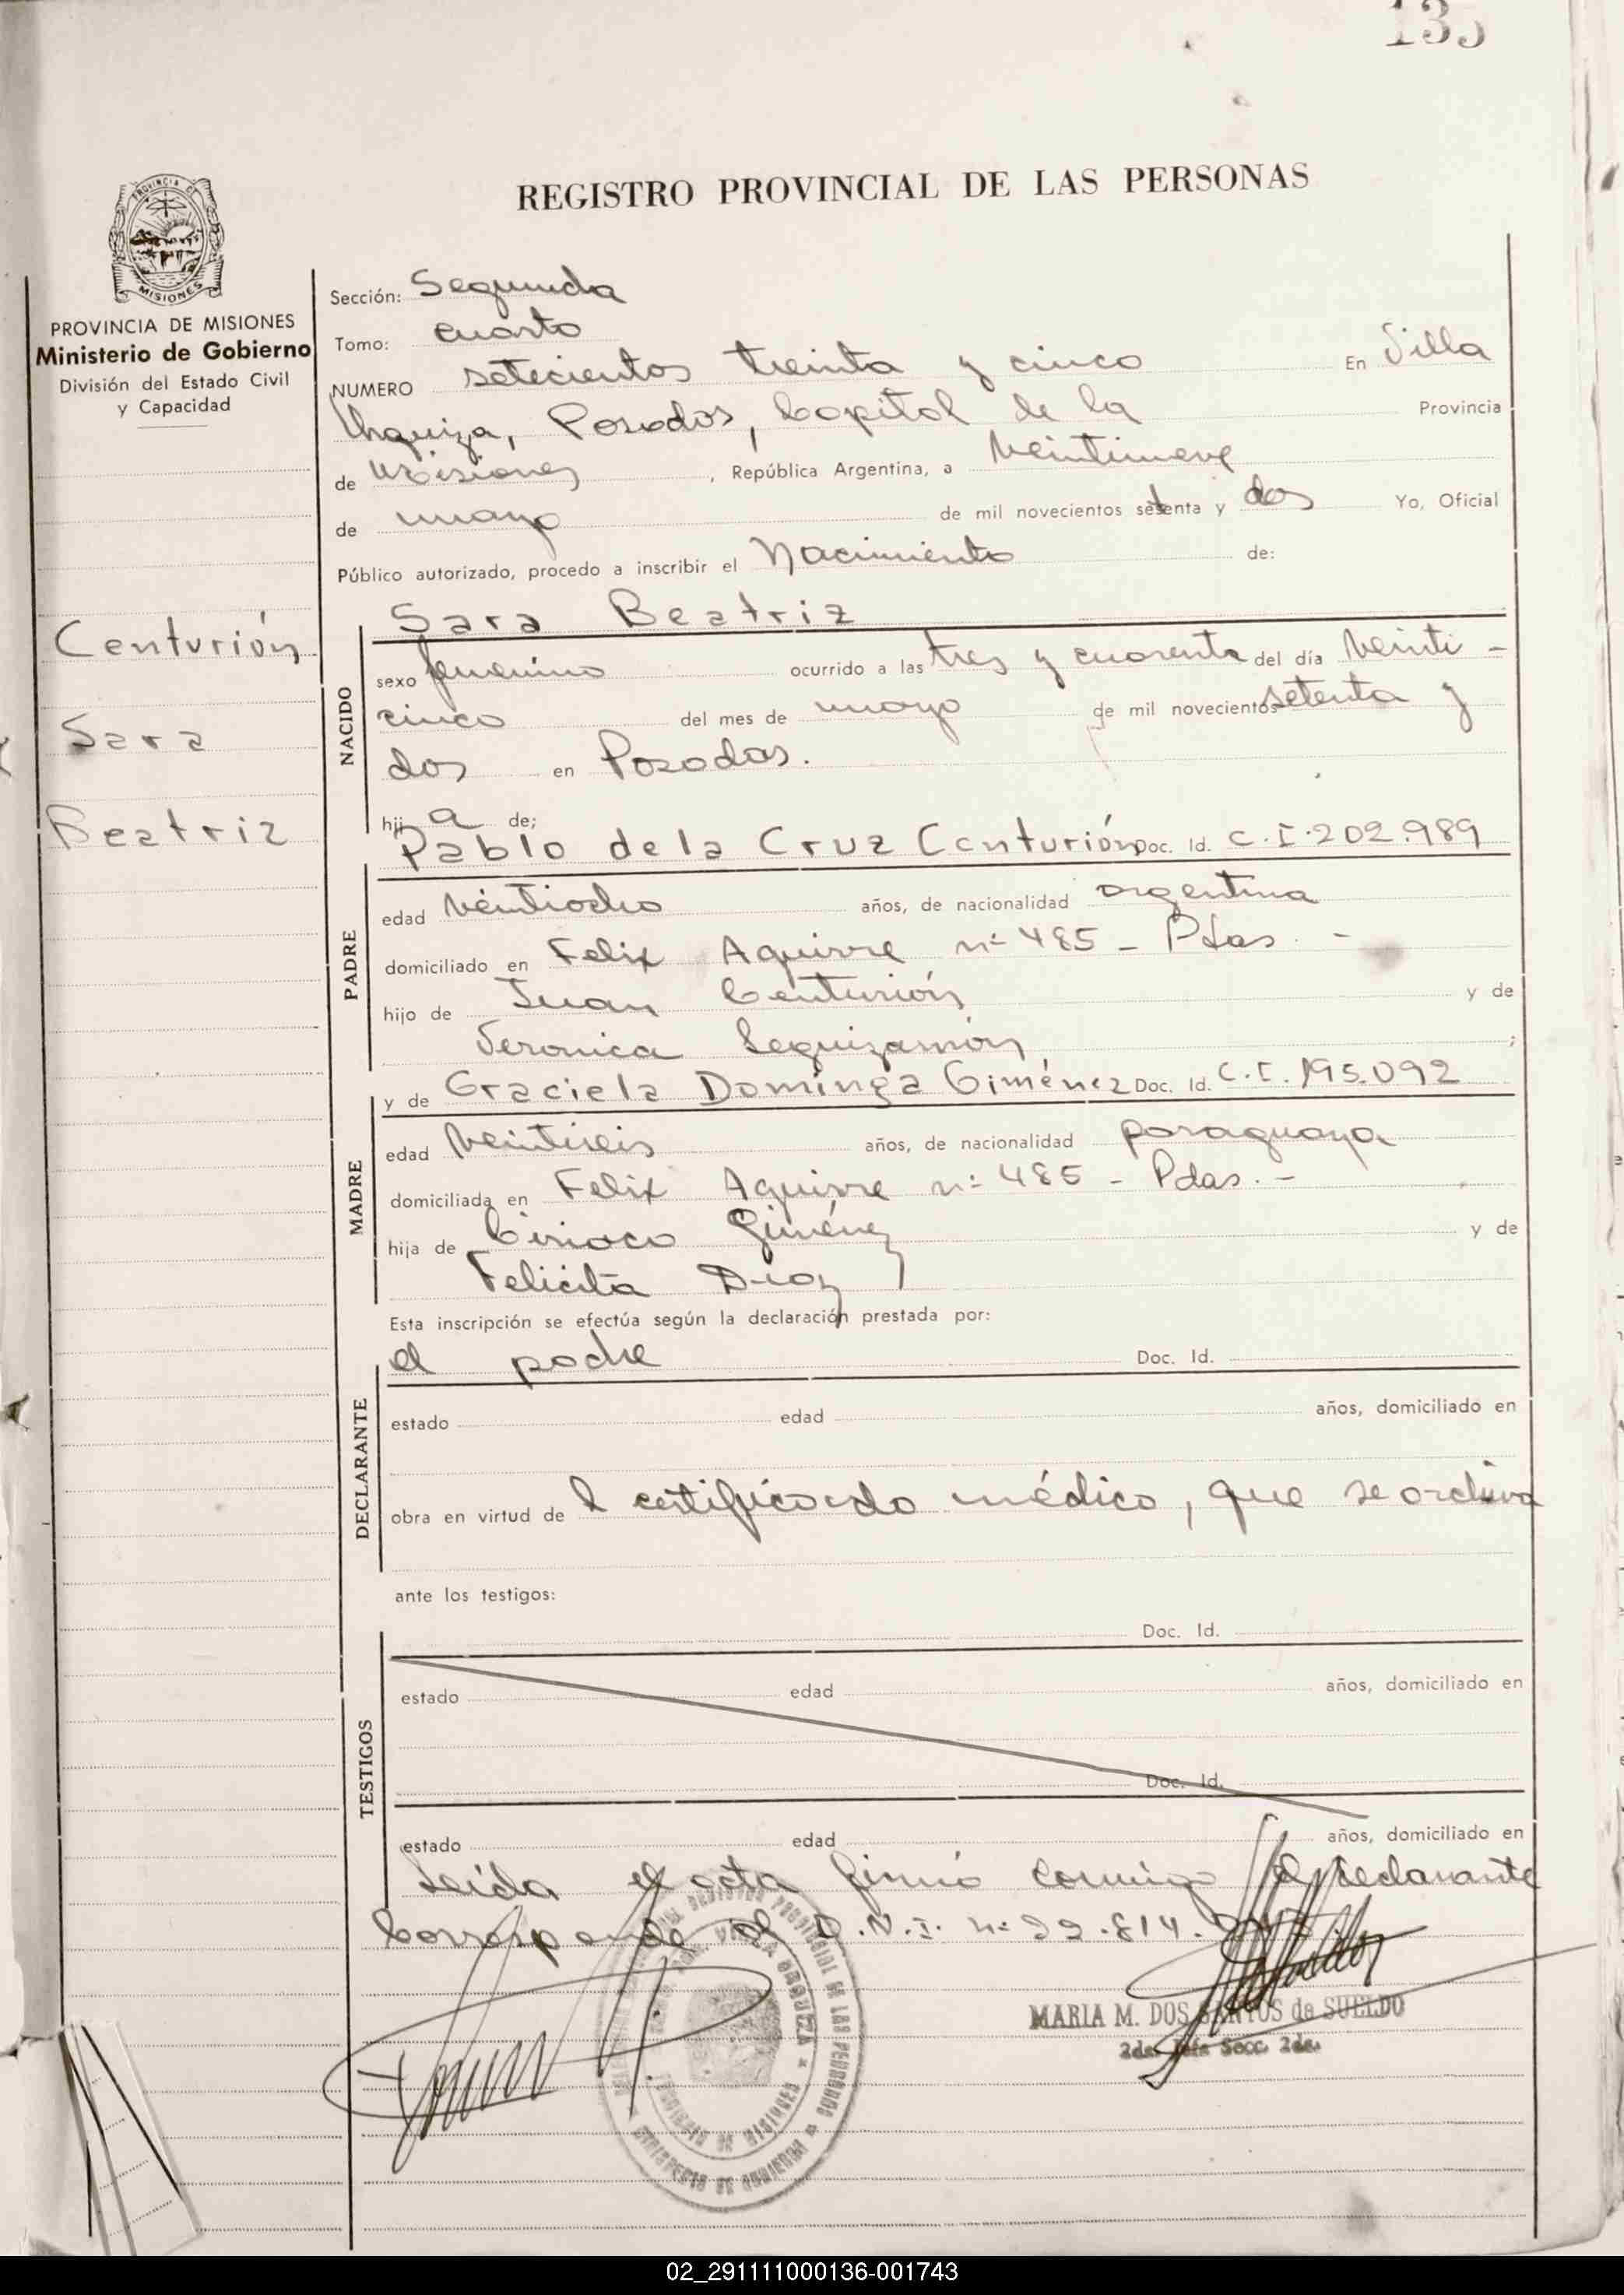 135
REGISTRO PROVINCIAL DE LAS PERSONAS
PROVINCIA DE MISIONES
PROVINCIA DE MISIONES
Ministerio de Gobierno
División del Estado Civil
y Capacidad
Centurión
Sara
Beatriz
Sección: Segunda
Tomo: cuarto
NUMERO setecientos treinta y cinco En Villa
Urquiza, Posadas, Capital de la Provincia
de Misiones, República Argentina, a Veintinueve
de mayo de mil novecientos setenta y dos Yo, Oficial
Público autorizado, procedo a inscribir el Nacimiento de:
Sara Beatriz
NACIDO
sexo femenino ocurrido a las tres y cuarenta del día Veinti -
cinco del mes de mayo de mil novecientos setenta y
dos en Posadas.
hij a de;
Pablo de la Cruz Centurión Doc. Id. C.I. 202.989
PADRE
edad Veintiocho años, de nacionalidad argentina
domiciliado en Felix Aguirre nº 485 - Pdas. -
hijo de Juan Centurión y de
Veronica Leguizamón ;
y de Graciela Dominga Giménez Doc. Id. C.I. 195.092
MADRE
edad Veintiseis años, de nacionalidad paraguaya
domiciliada en Felix Aguirre nº 485 - Pdas. -
hija de Ciriaco Giménez y de
Felicita Diaz
Esta inscripción se efectúa según la declaración prestada por:
el padre Doc. Id.
DECLARANTE
estado edad años, domiciliado en
obra en virtud de l certificado médico, que se archiva
ante los testigos:
Doc. Id.
TESTIGOS
estado edad años, domiciliado en
Doc. Id.
estado edad años, domiciliado en
Leída el acta firmó conmigo el declarante
Corresponde al D.N.I. nº 22.814.
VILLA URQUIZA
MARIA M. DOS SANTOS de SUELDO
2da. Jefe Secc. 2da.
02_291111000136-001743